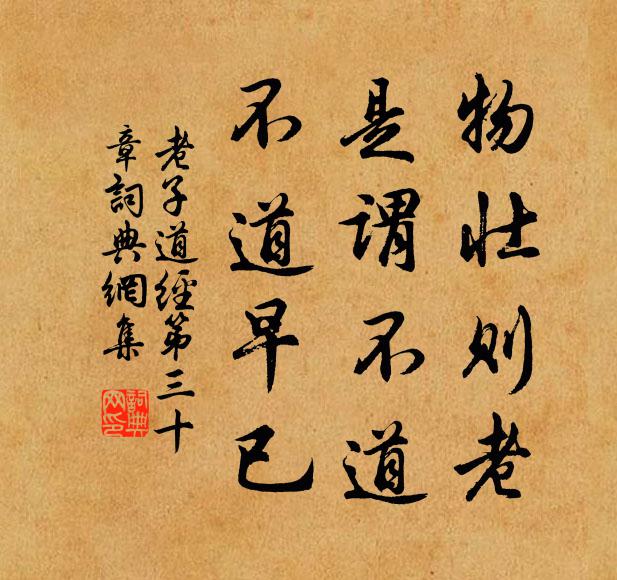 物壮则老
是謂不道
不道早已
老子道經第三十
章詞典網集
詞典
网印